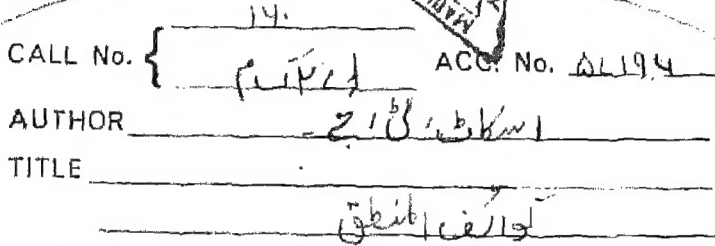 ۱۶۰
CALL No. { ACC. No. ۵۷۱۹۴
AUTHOR اسکاٹ، ٹی، جے۔
TITLE
کوائف المنطق